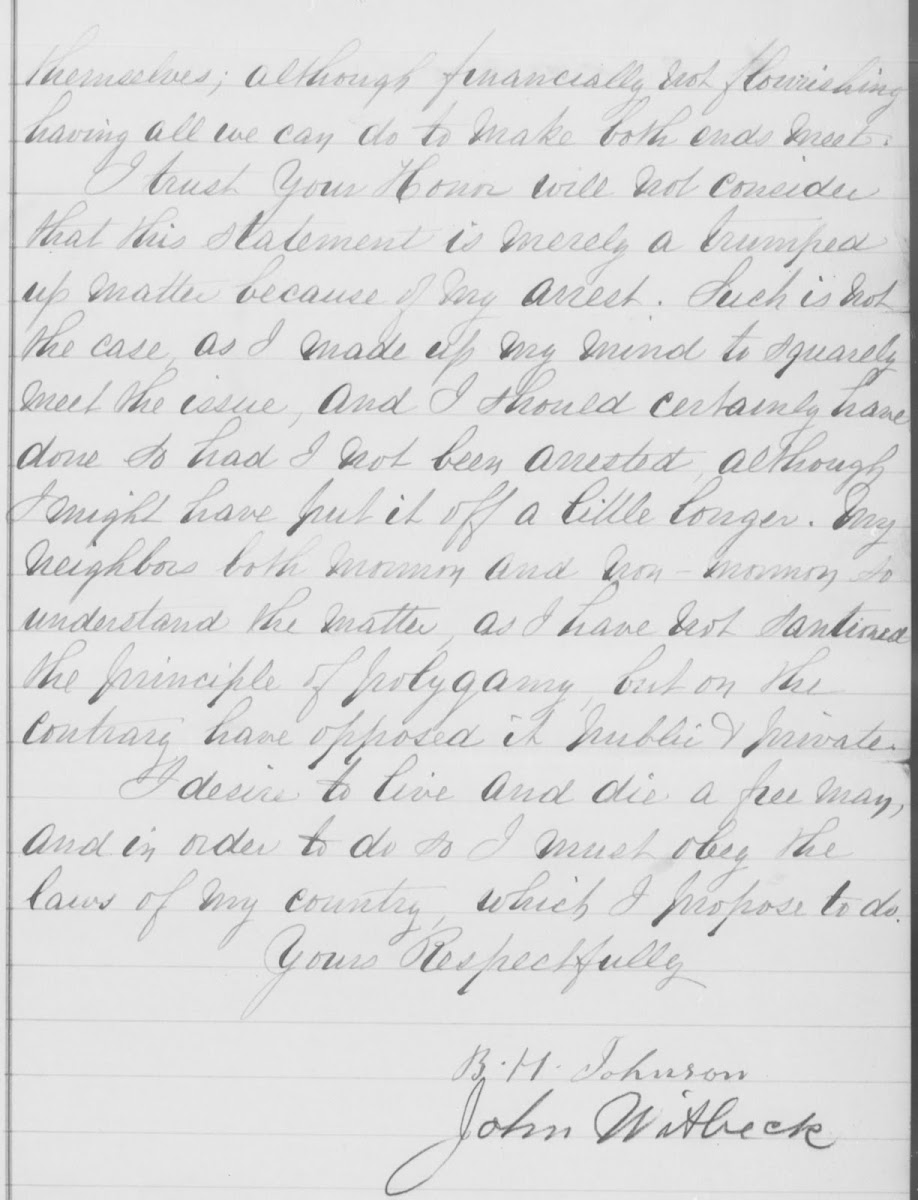 themselves; although financially not flourishing
having all we can do to make both ends meet.
I trust Your Honor will not consider
that this statement is merely a trumped
up matter because of my arrest. Such is not
the case, as I made up my mind to squarely
meet the issue, and I should certainly have
done so had I not been arrested, although
I might have put it off a little longer. My
neighbors both mormon and non-mormon, so
understand the matter, as I have not santioned
the principle of polygamy, but on the
contrary have opposed it public & private.
I desire to live and die a free man,
and in order to do so I must obey the
laws of my country, which I propose to do.
Yours Respectfully
B. H. Johnson
John Witbeck